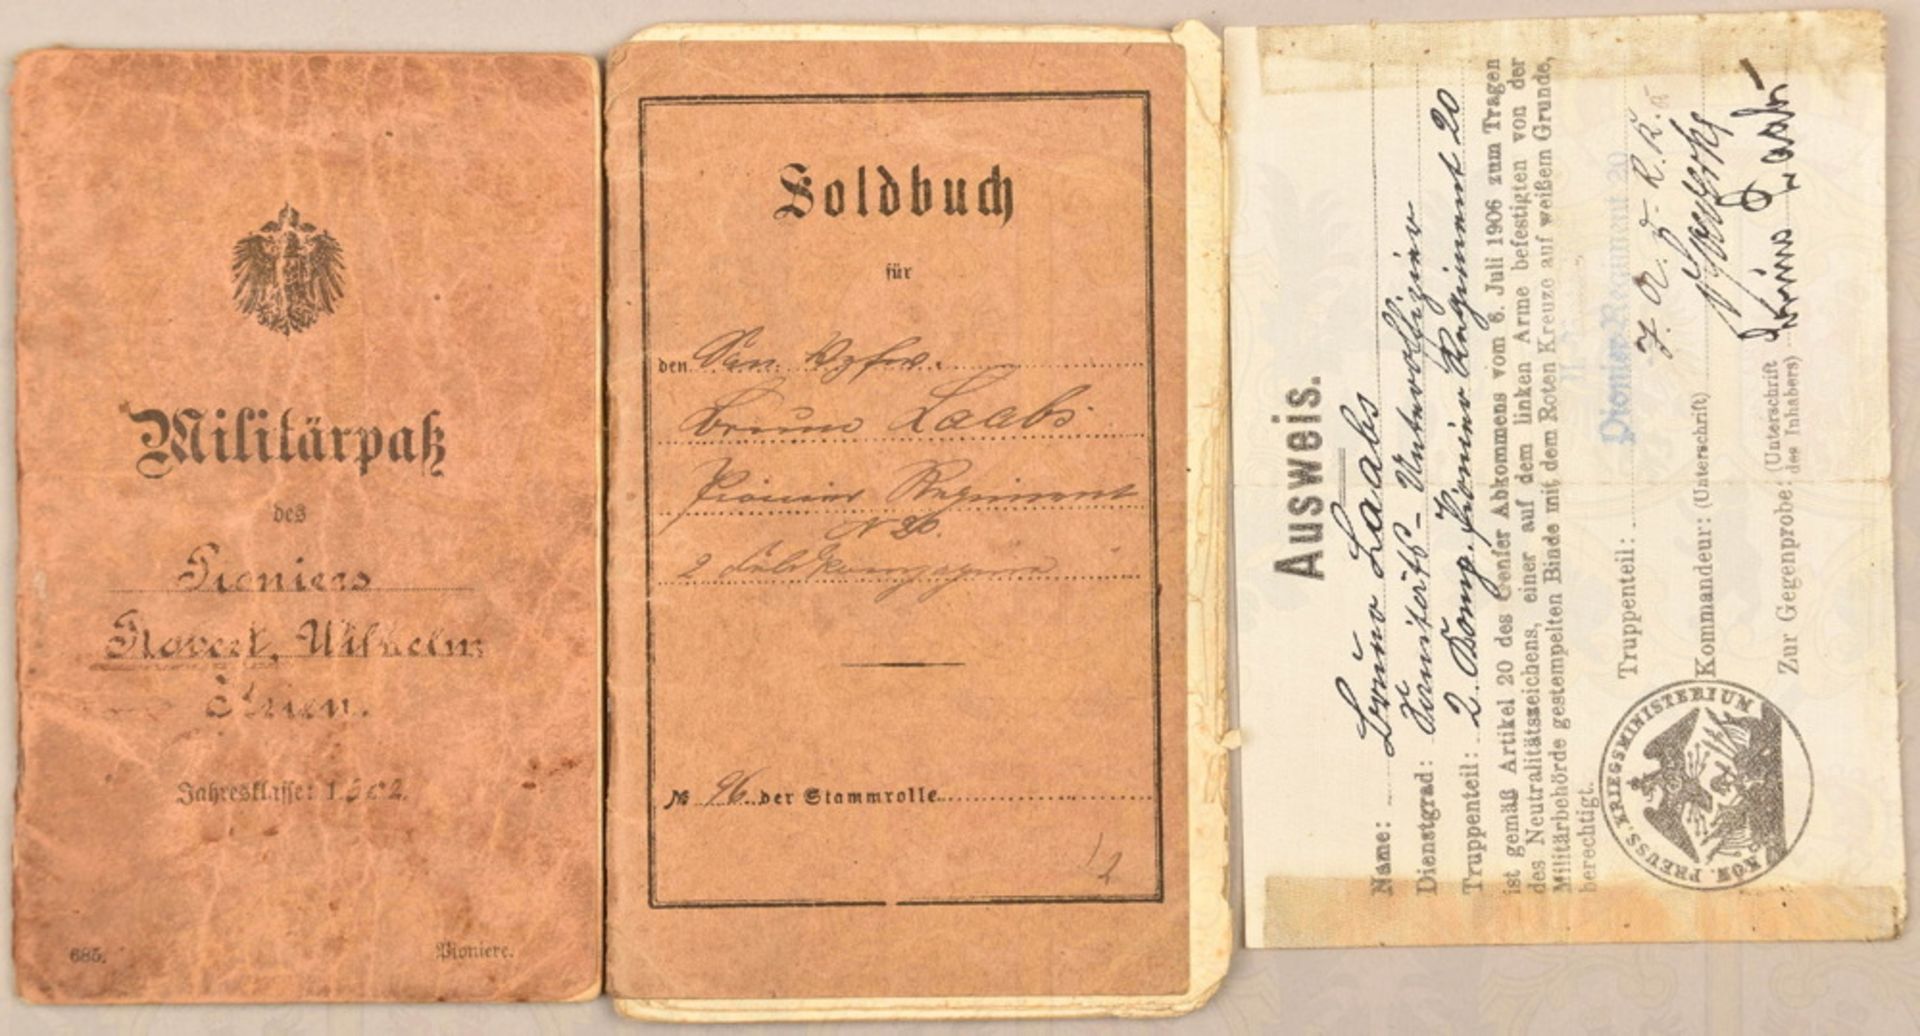 Militärpaß
des
Pioniers
Robert, Wilhelm
Jahresklasse: 1902.
685.
Pioniere.
Soldbuch
für
den San. Vzfw.
Bruno Laabs
Pionier Regiment
N 20.
2 Feldkompagnie
№ 96 der Stammrolle
Ausweis.
Name: Bruno Laabs
Dienstgrad: Sanitäts-Unteroffizier
Truppenteil: 2. Komp. Pionier Regiment 20
ist gemäß Artikel 20 des Genfer Abkommens vom 6. Juli 1906 zum Tragen
des Neutralitätszeichens, einer auf dem linken Arme befestigten von der
Militärbehörde gestempelten Binde mit dem Roten Kreuze auf weißem Grunde,
berechtigt.
Truppenteil: Pionier-Regiment 20
Kommandeur: (Unterschrift)
Zur Gegenprobe: (Unterschrift des Inhabers) Bruno Laabs
KÖN. PREUSS. KRIEGSMINISTERIUM